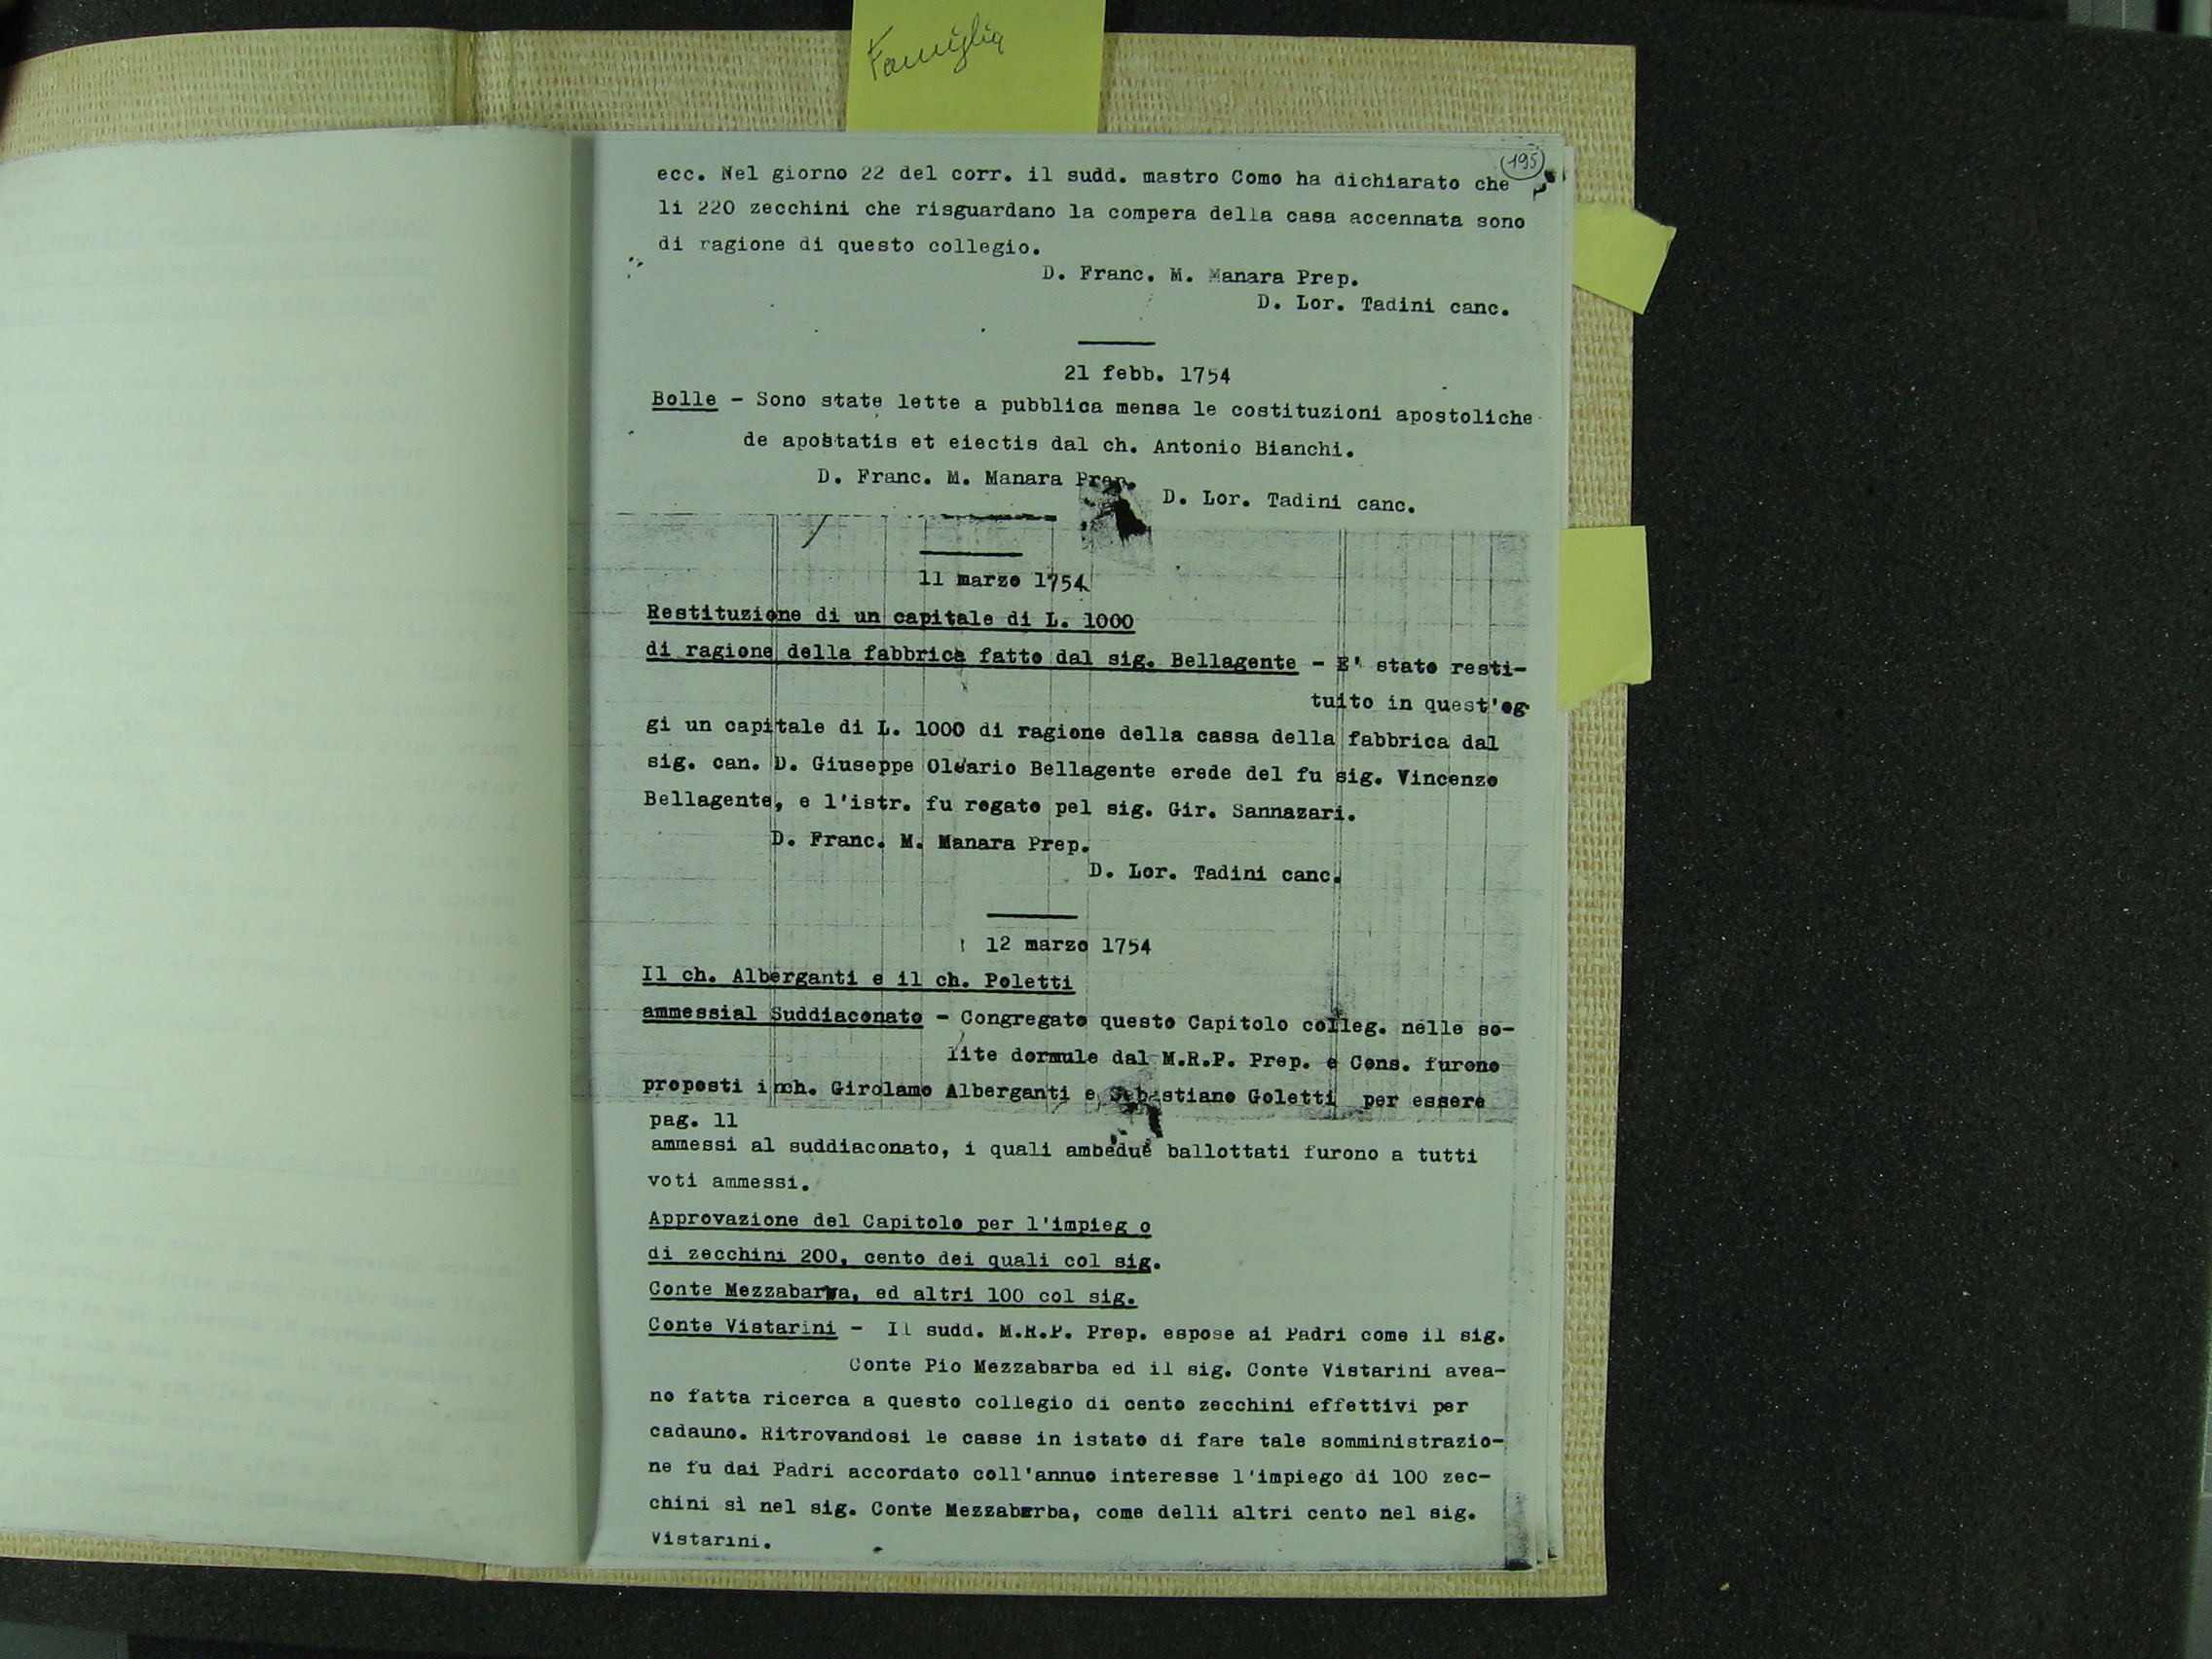 Famiglia
195
ecc. Nel giorno 22 del corr. il sudd. mastro Como ha dichiarato che
li 220 zecchini che risguardano la compera della casa accennata sono
di ragione di questo collegio.
D. Franc. M. Manara Prep.
D. Lor. Tadini canc.
21 febb. 1754
Bolle - Sono state lette a pubblica mensa le costituzioni apostoliche
de apostatis et eiectis dal ch. Antonio Bianchi.
D. Franc. M. Manara Prep.
D. Lor. Tadini canc.
11 marzo 1754
Restituzione di un capitale di L. 1000
di ragione della fabbrica fatto dal sig. Bellagente - E' stato resti-
tuito in quest'og
gi un capitale di L. 1000 di ragione della cassa della fabbrica dal
sig. can. D. Giuseppe Oleario Bellagente erede del fu sig. Vincenzo
Bellagente, e l'istr. fu rogato pel sig. Gir. Sannazari.
D. Franc. M. Manara Prep.
D. Lor. Tadini canc.
12 marzo 1754
Il ch. Alberganti e il ch. Poletti
ammessial Suddiaconato - Congregato questo Capitolo colleg. nelle so-
lite dormule dal M.R.P. Prep. e Cons. furono
proposti i ch. Girolamo Alberganti e Sebastiano Goletti per essere
pag. 11
ammessi al suddiaconato, i quali ambedue ballottati furono a tutti
voti ammessi.
Approvazione del Capitolo per l'impieg o
di zecchini 200, cento dei quali col sig.
Conte Mezzabarba, ed altri 100 col sig.
Conte Vistarini - Il sudd. M.R.P. Prep. espose ai Padri come il sig.
Conte Pio Mezzabarba ed il sig. Conte Vistarini avea-
no fatta ricerca a questo collegio di cento zecchini effettivi per
cadauno. Ritrovandosi le casse in istato di fare tale somministrazio-
ne fu dai Padri accordato coll'annuo interesse l'impiego di 100 zec-
chini sì nel sig. Conte Mezzabarba, come delli altri cento nel sig.
Vistarini.